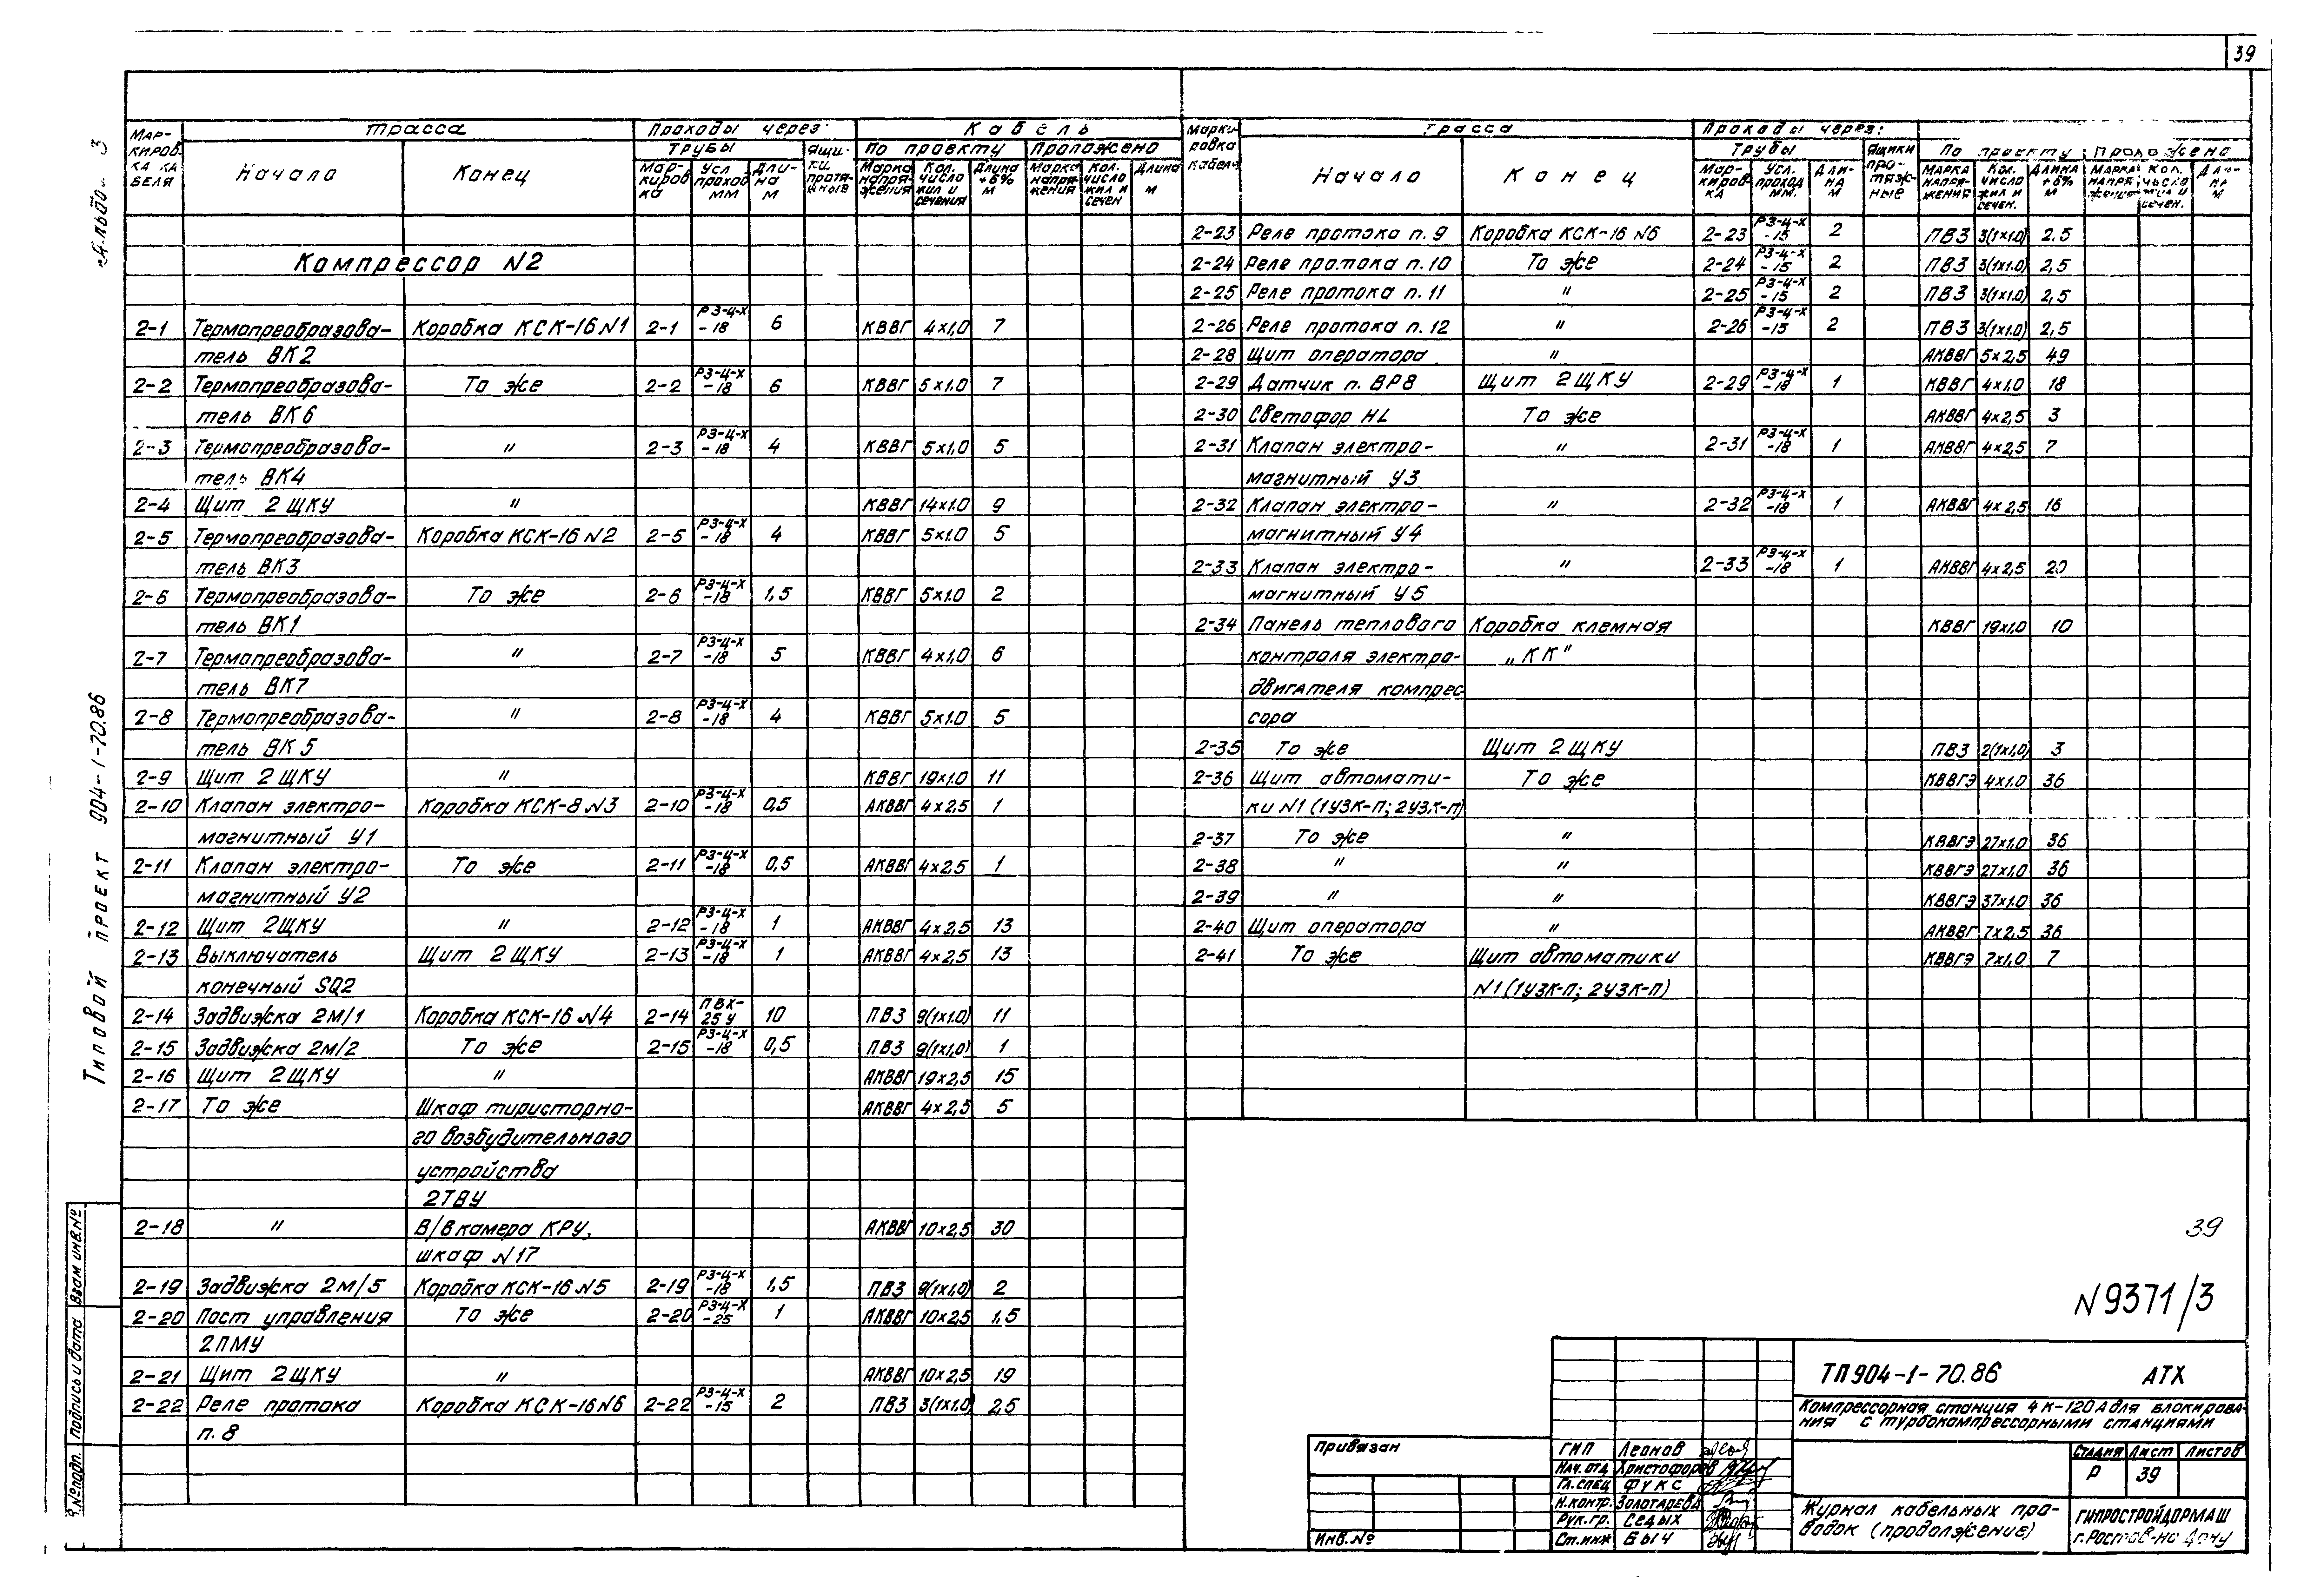 39
Альбом 3
Типовой проект 904-1-70.86
Маркировка кабеля | Трасса | Проходы через: | Кабель
Начало | Конец | Трубы | Ящики протяжные | По проекту | Проложено
Маркировка | Усл проход мм | Длина м | Марка напряжения | Кол. число жил и сечения | Длина +6% м | Марка напряжения | Кол. число жил и сечен | Длина м
Компрессор N2
2-1 Термопреобразова- Коробка КСК-16 N1 2-1 РЗ-Ц-Х-18 6 КВВГ 4х1,0 7
тель ВК2
2-2 Термопреобразова- То же 2-2 РЗ-Ц-Х-18 6 КВВГ 5х1.0 7
тель ВК6
2-3 Термопреобразова- " 2-3 РЗ-Ц-Х-18 4 КВВГ 5х1,0 5
тель ВК4
2-4 Щит 2 ЩКУ " КВВГ 14х1.0 9
2-5 Термопреобразова- Коробка КСК-16 N2 2-5 РЗ-Ц-Х-18 4 КВВГ 5х1.0 5
тель ВК3
2-6 Термопреобразова- То же 2-6 РЗ-Ц-Х-18 1,5 КВВГ 5х1.0 2
тель ВК1
2-7 Термопреобразова- " 2-7 РЗ-Ц-Х-18 5 КВВГ 4х1,0 6
тель ВК7
2-8 Термопреобразова- " 2-8 РЗ-Ц-Х-18 4 КВВГ 5х1.0 5
тель ВК5
2-9 Щит 2 ЩКУ " КВВГ 19х1.0 11
2-10 Клапан электро- Коробка КСК-8 N3 2-10 РЗ-Ц-Х-18 0,5 АКВВГ 4х2,5 1
магнитный У1
2-11 Клапан электро- То же 2-11 РЗ-Ц-Х-18 0,5 АКВВГ 4х2,5 1
магнитный У2
2-12 Щит 2ЩКУ " 2-12 РЗ-Ц-Х-18 1 АКВВГ 4х2,5 13
2-13 Выключатель Щит 2 ЩКУ 2-13 РЗ-Ц-Х-18 1 АКВВГ 4х2,5 13
конечный SQ2
2-14 Задвижка 2М/1 Коробка КСК-16 N4 2-14 ПВХ-25У 10 ПВ3 9(1х1.0) 11
2-15 Задвижка 2М/2 То же 2-15 РЗ-Ц-Х-18 0,5 ПВ3 9(1х1,0) 1
2-16 Щит 2ЩКУ " АКВВГ 19х2,5 15
2-17 То же Шкаф тиристорно- АКВВГ 4х2,5 5
го возбудительного
устройства
2ТВУ
2-18 " В/в камера КРУ, АКВВГ 10х2,5 30
шкаф N17
2-19 Задвижка 2М/5 Коробка КСК-16 N5 2-19 РЗ-Ц-Х-18 1,5 ПВ3 9(1х1,0) 2
2-20 Пост управления То же 2-20 РЗ-Ц-Х-25 1 АКВВГ 10х2,5 1,5
2ПМУ
2-21 Щит 2ЩКУ " АКВВГ 10х2,5 19
2-22 Реле протока Коробка КСК-16 N6 2-22 РЗ-Ц-Х-15 2 ПВ3 3(1х1.0) 2,5
п. 8
Маркировка кабеля | Трасса | Проходы через:
Начало | Конец | Трубы | Ящики протяжные | По проекту | Проложено
Маркировка | Усл. проход мм. | Длина м | Марка напряжения | Кол. число жил и сечен. | Длина +6% м | Марка напряжения | Кол. число жил и сечен. | Длина м
2-23 Реле протока п. 9 Коробка КСК-16 N6 2-23 РЗ-Ц-Х-15 2 ПВ3 3(1х1.0) 2,5
2-24 Реле протока п. 10 То же 2-24 РЗ-Ц-Х-15 2 ПВ3 3(1х1.0) 2,5
2-25 Реле протока п. 11 " 2-25 РЗ-Ц-Х-15 2 ПВ3 3(1х1.0) 2,5
2-26 Реле протока п. 12 " 2-26 РЗ-Ц-Х-15 2 ПВ3 3(1х1.0) 2,5
2-28 Щит оператора " АКВВГ 5х2,5 49
2-29 Датчик п. ВР8 Щит 2ЩКУ 2-29 РЗ-Ц-Х-18 1 КВВГ 4х1,0 18
2-30 Светофор HL То же АКВВГ 4х2,5 3
2-31 Клапан электро- " 2-31 РЗ-Ц-Х-18 1 АКВВГ 4х2,5 7
магнитный У3
2-32 Клапан электро- " 2-32 РЗ-Ц-Х-18 1 АКВВГ 4х2,5 16
магнитный У4
2-33 Клапан электро- " 2-33 РЗ-Ц-Х-18 1 АКВВГ 4х2,5 20
магнитный У5
2-34 Панель теплового Коробка клемная КВВГ 19х1,0 10
контроля электро- „КК"
двигателя компрес
сора
2-35 То же Щит 2ЩКУ ПВ3 2(1х1,0) 3
2-36 Щит автомати- То же КВВГЭ 4х1.0 36
ки N1 (1УЗК-П; 2УЗК-П)
2-37 То же " КВВГЭ 27х1.0 36
2-38 " " КВВГЭ 27х1.0 36
2-39 " " КВВГЭ 37х1.0 36
2-40 Щит оператора " АКВВГ 7х2.5 36
2-41 То же Щит автоматики КВВГЭ 7х1,0 7
N1 (1УЗК-П; 2УЗК-П)
39
N9371/3
ТП904-1-70.86 АТХ
Компрессорная станция 4К-120А для блокирова-
ния с турбокомпрессорными станциями
Стадия Лист Листов
Р 39
Журнал кабельных про-
водок (продолжение)
ГИПРОСТРОЙДОРМАШ
г. Ростов-на Дону
Привязан
Инв. №
ГИП Леонов
Нач. отд Христофоров
Гл. спец Фукс
Н. контр. Золотарева
Рук. гр. Седых
Ст. инж Быч
Взам инв. №
Подпись и дата
№ подл.